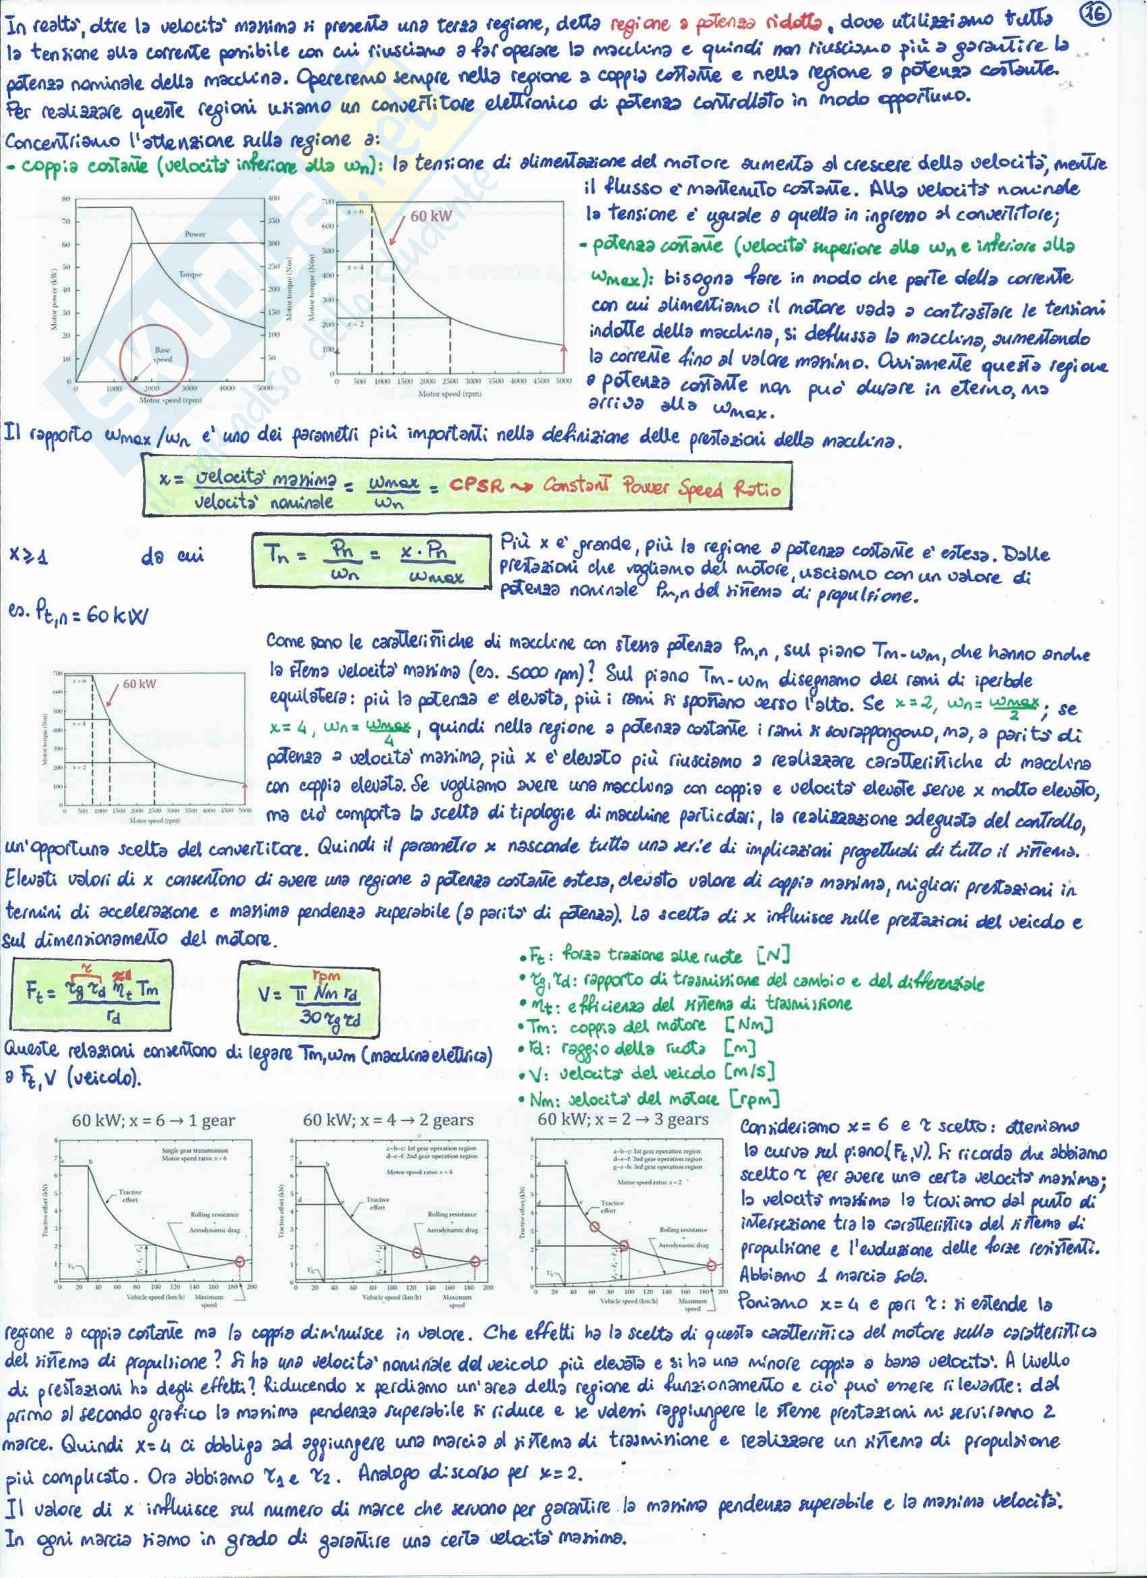 16
In realtà, oltre la velocità massima si presenta una terza regione, detta regione a potenza ridotta, dove utilizziamo tutta
la tensione alla corrente possibile con cui riusciamo a far operare la macchina e quindi non riusciamo più a garantire la
potenza nominale della macchina. Opereremo sempre nella regione a coppia costante e nella regione a potenza costante.
Per realizzare queste regioni usiamo un convertitore elettronico di potenza controllato in modo opportuno.
Concentriamo l'attenzione sulla regione a:
- coppia costante (velocità inferiore alla ωn): la tensione di alimentazione del motore aumenta al crescere della velocità, mentre
il flusso è mantenuto costante. Alla velocità nominale
la tensione è uguale a quella in ingresso al convertitore;
- potenza costante (velocità superiore alla ωn e inferiore alla
ωmax): bisogna fare in modo che parte della corrente
con cui alimentiamo il motore vada a contrastare le tensioni
indotte della macchina, si deflussa la macchina, aumentando
la corrente fino al valore massimo. Ovviamente questa regione
a potenza costante non può durare in eterno, ma
arriva alla ωmax.
Motor power (kW)
Power
Torque
Base speed
Motor torque (Nm)
Motor speed (rpm)
0 1000 2000 3000 4000 5000
Motor torque (Nm)
x = 6
60 kW
x = 4
x = 2
0 500 1000 1500 2000 2500 3000 3500 4000 4500 5000
Motor speed (rpm)
Il rapporto ωmax/ωn è uno dei parametri più importanti nella definizione delle prestazioni della macchina.
x = velocità massima / velocità nominale = ωmax / ωn = CPSR ⇝ Constant Power Speed Ratio
x ≥ 1 da cui Tn = Pn / ωn = x · Pn / ωmax
Più x è grande, più la regione a potenza costante è estesa. Dalle
prestazioni che vogliamo del motore, usciamo con un valore di
potenza nominale Pm,n del sistema di propulsione.
es. Pt,n = 60 kW
Come sono le caratteristiche di macchine con stessa potenza Pm,n, sul piano Tm-ωm, che hanno anche
la stessa velocità massima (es. 5000 rpm)? Sul piano Tm-ωm disegnamo dei rami di iperbole
equilatera: più la potenza è elevata, più i rami si spostano verso l'alto. Se x=2, ωn = ωmax/2; se
x=4, ωn = ωmax/4, quindi nella regione a potenza costante i rami si sovrappongono, ma, a parità di
potenza a velocità massima, più x è elevato più riusciamo a realizzare caratteristiche di macchina
con coppia elevata. Se vogliamo avere una macchina con coppia e velocità elevate serve x molto elevato,
ma ciò comporta la scelta di tipologie di macchine particolari, la realizzazione adeguata del controllo,
un'opportuna scelta del convertitore. Quindi il parametro x nasconde tutta una serie di implicazioni progettuali di tutto il sistema.
60 kW
x = 6
x = 4
x = 2
Motor torque (Nm)
0 500 1000 1500 2000 2500 3000 3500 4000 4500 5000
Motor speed (rpm)
Elevati valori di x consentono di avere una regione a potenza costante estesa, elevato valore di coppia massima, migliori prestazioni in
termini di accelerazione e massima pendenza superabile (a parità di potenza). La scelta di x influisce sulle prestazioni del veicolo e
sul dimensionamento del motore.
τ
Ft = τg τd ηt Tm / rd
rpm
V = π Nm rd / 30 τg τd
• Ft: forza trazione alle ruote [N]
• τg, τd: rapporto di trasmissione del cambio e del differenziale
• ηt: efficienza del sistema di trasmissione
• Tm: coppia del motore [Nm]
• rd: raggio della ruota [m]
• V: velocità del veicolo [m/s]
• Nm: velocità del motore [rpm]
Queste relazioni consentono di legare Tm, ωm (macchina elettrica)
a Ft, V (veicolo).
60 kW; x = 6 → 1 gear
Single gear transmission
Motor speed ratio: x = 6
Tractive effort
Rolling resistance
+
Aerodynamic drag
Tractive effort (kN)
0 20 40 60 80 100 120 140 160 180 200
Vehicle speed (km/h)
Maximum speed
60 kW; x = 4 → 2 gears
a–b–c: 1st gear operation region
d–e–f: 2nd gear operation region
Motor speed ratio: x = 4
Tractive effort
Rolling resistance
+
Aerodynamic drag
Tractive effort (kN)
0 20 40 60 80 100 120 140 160 180 200
Vehicle speed (km/h)
Maximum speed
60 kW; x = 2 → 3 gears
a–b–c: 1st gear operation region
d–e–f: 2nd gear operation region
g–e–h: 3rd gear operation region
Motor speed ratio: x = 2
Tractive effort
Rolling resistance
+
Aerodynamic drag
Tractive effort (kN)
0 20 40 60 80 100 120 140 160 180 200
Vehicle speed (km/h)
Maximum speed
Consideriamo x = 6 e τ scelto: otteniamo
la curva sul piano (Ft, V). Si ricorda che abbiamo
scelto τ per avere una certa velocità massima;
la velocità massima la troviamo dal punto di
intersezione tra la caratteristica del sistema di
propulsione e l'evoluzione delle forze resistenti.
Abbiamo 1 marcia sola.
Poniamo x=4 e pari τ: si estende la
regione a coppia costante ma la coppia diminuisce in valore. Che effetti ha la scelta di questa caratteristica del motore sulla caratteristica
del sistema di propulsione? Si ha una velocità nominale del veicolo più elevata e si ha una minore coppia a bassa velocità. A livello
di prestazioni ha degli effetti? Riducendo x perdiamo un'area della regione di funzionamento e ciò può essere rilevante: dal
primo al secondo grafico la massima pendenza superabile si riduce e se volessi raggiungere le stesse prestazioni mi serviranno 2
marce. Quindi x=4 ci obbliga ad aggiungere una marcia al sistema di trasmissione e realizzare un sistema di propulsione
più complicato. Ora abbiamo τ1 e τ2. Analogo discorso per x=2.
Il valore di x influisce sul numero di marce che servono per garantire la massima pendenza superabile e la massima velocità.
In ogni marcia siamo in grado di garantire una certa velocità massima.